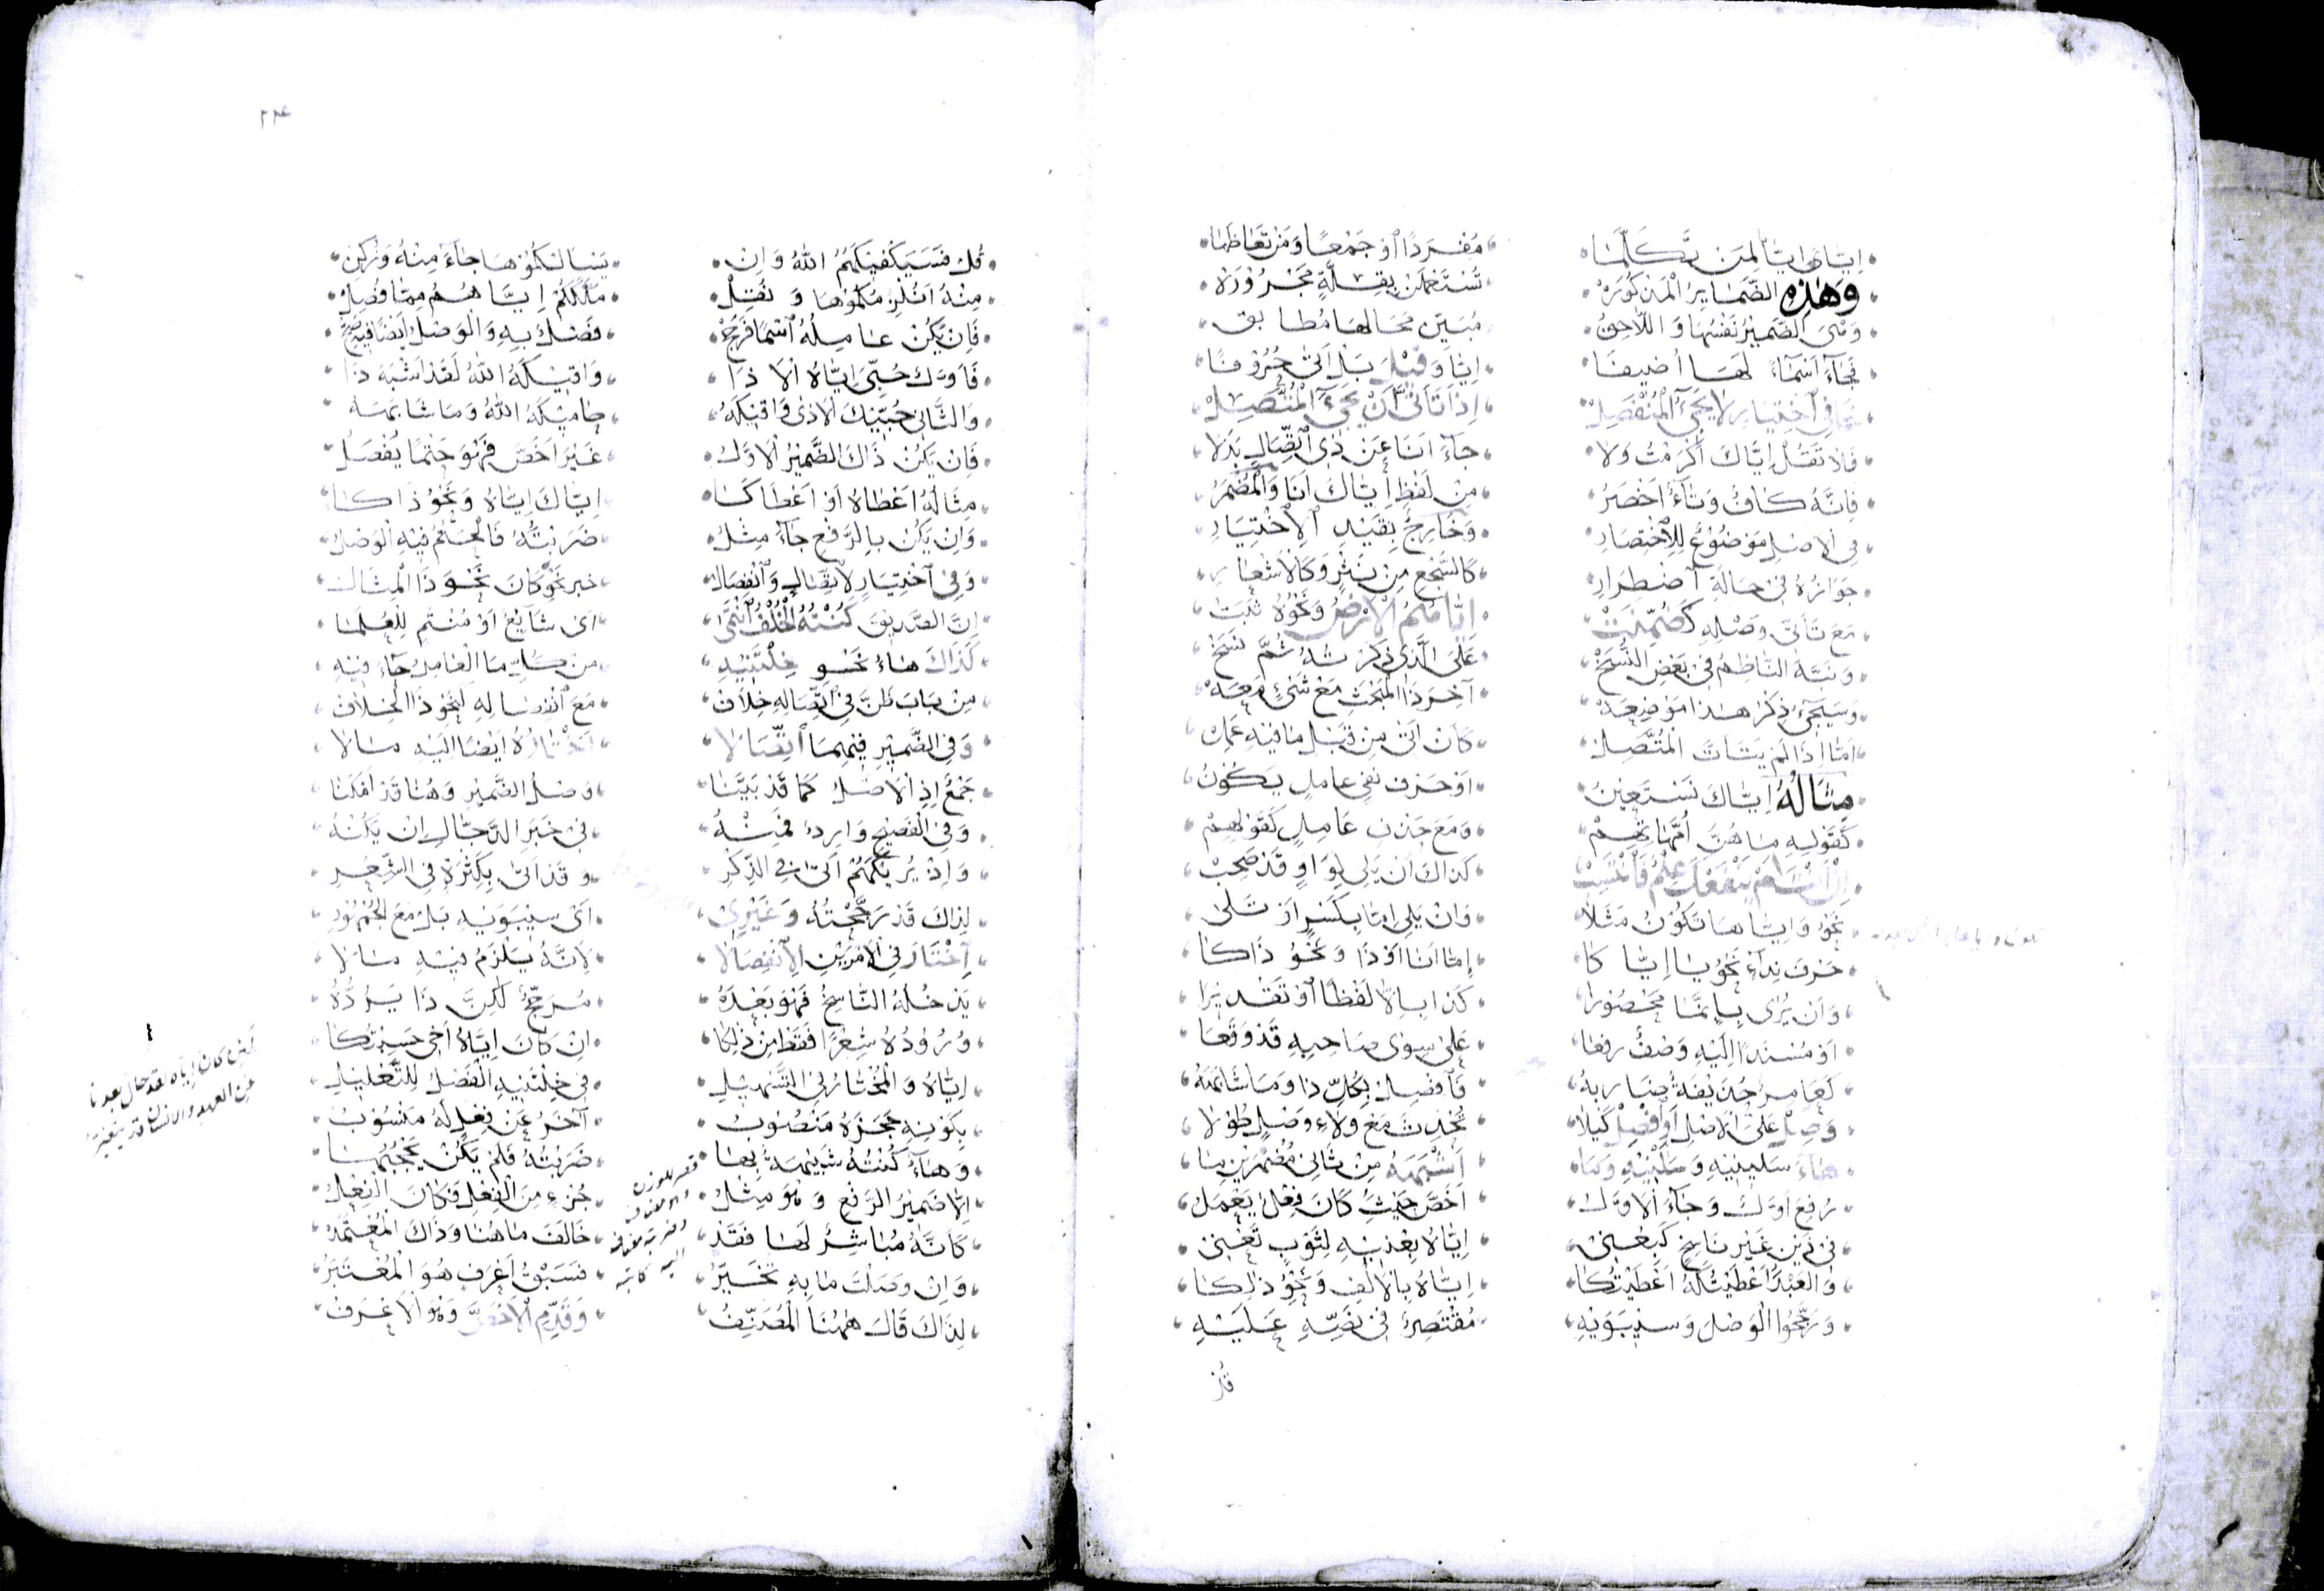 اِيَّايَ اِيَّانا لِمَن تَكَلَّمَا مُفْرَدًا اَوْ جَمْعًا وَمَنْ تَعَاظَمَا
وَهٰذِهِ الضَّمَايِرُ الْمَذْكُورَهْ تُسْتَعْمَلَنْ بِقِلَّةٍ مَجْرُورَهْ
وَهْيَ الضَّمِيْرُ نَفْسُهَا وَاللَّاحِقُ مُبَيِّن مَحَالِهَا مُطَابِقُ
فَجَاءَ اَسْمَاءً لَهَا اُضِيفَا اِيَّا وَقِيْلَ بَلْ اَتَى حُرُوْفًا
وَفِي اخْتِيَارٍ لَا يَجِيْءُ الْمُنْفَصِلْ اِذَا تَأَتَّى أَنْ يَجِيْءَ الْمُتَّصِلْ
فَلَا تَقُلْ اِيَّاكَ اَكْرَمْتُ وَلَا جَاءَ اَنَا عَنْ ذِي اتِّصَالٍ بَدَلَا
فَاِنَّهُ كَافٌ وَتَاءٌ اَخْصَرُ مِنْ لَفْظِ اِيَّاكَ اَنَا وَالْمُضْمَرُ
فِي الْاَصْلِ مَوْضُوْعٌ لِلِاخْتِصَارِ وَخَارِجٌ بِقَيْدِ الْاِخْتِيَارِ
جَوَازُهُ فِي حَالَةِ اضْطِرَارِ كَالسَّجْعِ مِنْ نَثْرٍ وَكَالْاَشْعَارِ
مَعَ تَأَتِّي وَصْلِهِ كَضُمِّنَتْ اِيَّاهُمُ الْاَرْضُ وَنَحْوُهُ ثَبَتْ
وَنَبَّهَ النَّاظِمُ فِي بَعْضِ النُّسَخْ عَلَى الَّذِي ذَكَرْتُهُ ثُمَّ نَسَخْ
وَسَيَجِيْءُ ذِكْرُ هٰذَا مَوْضِعَهْ آخِرَ ذَا الْمَبْحَثِ مَعْ شَيْءٍ مَعَهْ
اَمَّا اِذَا لَمْ يَتَأَتَّ الْمُتَّصِلْ كَاَنْ اَتَى مِنْ قَبْلِ مَا فِيْهِ عَمِلْ
مِثَالُهُ اِيَّاكَ نَسْتَعِيْنُ اَوْ حَرْفُ نَفْيٍ عَامِلٍ يَكُوْنُ
كَقَوْلِهِ مَا هُنَّ اُمَّهَاتِهِمْ وَمَعَ حَذْفِ عَامِلٍ كَقَوْلِهِمْ
اِنْ اَنْتَ لَمْ يَنْفَعْكَ عِلْمٌ فَانْتَسِبْ كَذَاكَ اَنْ يَلِي لِوَاوٍ قَدْ صَحِبْ
نَحْوُ وَاِيَّاهَا تَكُوْنُ مَثَلَا وَاَنْ يَلِي اِمَّا بِكَسْرٍ اَوْ تَلَى
حَرْفَ نِدَاءٍ نَحْوُ يَا اِيَّاكَا اِمَّا اَنَا اَوْ ذَا وَنَحْوُ ذَاكَا
وَاَنْ يُرَى بِاِنَّمَا مَحْصُوْرَا كَذَا بِاِلَّا لَفْظًا اَوْ تَقْدِيْرَا
اَوْ مُسْنَدًا اِلَيْهِ وَصْفٌ رفعَا عَلَى سِوَى صَاحِبِهِ قَدْ وَقَعَا
كَعَامِرٍ حُذَيْفَةٌ ضَارِبهُ فَافْصِلْ بِكُلِّ ذَا وَمَا شَابَهَهُ
وَصِلْ عَلَى الْاَصْلِ اَوِ افْصِلْ كَيْلَا تُحْدِثَ مَعْ وِلَاءِ وَصْلٍ طُوْلَا
هَاءَ سَلِيْنِيْهِ وَسَلْنِيْهِ وَمَا اَشْبَهَهُ مِنْ ثَانِي مُضْمَرَيْنِ مَا
رُفِعَ اَوَّلٌ وَجَاءَ الْاَوَّلْ اَخَصَّ حَيْثُ كَانَ فِعْلٌ يَعْمَلْ
فِي ذَيْنِ غَيْر نَاسِخٍ كَبِعْنِي اِيَّاهُ بِعْنِيْهِ لِثَوْبٍ تَعْنِي
وَالْعَبْدُ اَعْطَيْتُكَهُ اَعْطَيْتُكَا اِيَّاهُ بِالْاَلِفِ وَنَحْوُ ذٰلِكَا
وَرَجَّحُوا الْوَصْلَ وَسِيْبَوَيْهِ مُقْتَصِرٌ فِي نَصِّهِ عَلَيْهِ
قُلْ
٢٣٤
قُلْ فَسَيَكْفِيْكَهُمُ اللهُ وَاِنْ يَسْأَلْكُمُوْهَا جَاءَ مِنْهُ وَزُكِنْ
مِنْهُ اَنُلْزِمُكُمُوْهَا وَنُقِلْ مَلَّكَكُمْ اِيَّاهُمُ مِمَّا فُصِلْ
فَاِنْ يَكُنْ عَامِلُهُ اسْمًا فَرَجَحْ فَصْلٌ بِهِ وَالْوَصْلُ اَيْضًا فِيْهِ صَحْ
فَاَوَّلٌ حُبِّي اِيَّاهُ الا ذَا وَاقْبَلْكَهُ اللهُ لَقَدْ اَشْبَهَ ذَا
وَالثَّانِي حُبِّيْكَ الْاَذَى وَاقْيَكَهُ حَامِيْكَهُ اللهُ وَمَا شَابَهَهُ
فَاِنْ يَكُنْ ذَاكَ الضَّمِيْرُ الْاَوَّلُ غَيْرَ اَخَصَّ فَهْوَ حَتْمًا يُفْصَلُ
مِثَالُهُ اَعْطَاهُ اَوْ اَعْطَاكَا اِيَّاكَ اِيَّاهُ وَنَحْوُ ذَاكَا
وَاِنْ يَكُنْ بِالرَّفْعِ جَاءَ مِثْلُ ضَرَبْتُهُ فَالْحُكْمُ فِيْهِ الْوَصْلُ
وَفِي اخْتِيَارٍ لِاتِّصَالٍ وَانْفِصَالْ خبر نَحْوِ كَانَ نَحْوَ ذَا الْمِثَالْ
اِنَّ الصَّدِيْقَ كُنْتُهُ الْخُلْفُ انْتَمَى اَيْ شَايِعٌ اَوْ مُنْتَمٍ لِلْعُلَمَا
كَذَاكَ هَاءُ نَحْوِ خِلْتَنِيْهِ مِنْ كُلِّ مَا الْعَامِلُ جَاءَ فِيْهِ
مِنْ بَابِ ظَنَّ فِي اتِّصَالِهِ خِلَافْ مَعَ انْفِصَالِهِ لِنَحْوِ ذَا الْخِلَافْ
وَفِي الضَّمِيْرِ فِيْهِمَا اتِّصَالَا اَخْتَارُهُ اَيْضًا اِلَيْهِ مَالَا
جَمْعٌ اِذِ الْاَصْلُ كَمَا قَدْ بَيَّنَا وَصْلُ الضَّمِيْرِ وَهُنَا قَدْ اَمْكَنَا
وَفِي الْفَصِيْحِ وَارِدٌ فَمِنْهُ فِي خَبَرِ الدَّجَّالِ اِنْ يَكُنْهُ
وَاِذْ يُرِيْكَهُمْ اَتَى فِي الذِّكْرِ وَقَدْ اَتَى بِكَثْرَةٍ فِي الشِّعْرِ
لِذَاكَ قَدْ رَجَّحْتُهُ وَغَيْرِيْ اَيْ سِيْبَوَيْهِ بَلْ مَعَ الْجُمْهُوْرِ
اِخْتَارَ فِي الْاَمْرَيْنِ الِانْفِصَالَا لِاَنَّهُ يَلْزَمُ فِيْهِ مَالَا
يَدْخُلُهُ النَّاسِخُ فَهْوَ بَعْدَهُ مُرَجَّحٌ لٰكِنَّ ذَا يَرُدُّهُ
وُرُوْدُهُ شِعْرًا فَقَطْ مِنْ ذٰلِكَا اِنْ كَانَ اِيَّاهُ اَخِي حَسِبْتُكَا
اِيَّاهُ وَالْمُخْتَارُ فِي التَّسْهِيْلِ فِي خِلْتَنِيْهِ الْفَصْلُ لِلتَّعْلِيْلِ
بِكَوْنِهِ حَجَزَهُ مَنْصُوْبُ آخَرُ عَنْ فِعْلٍ لَهُ مَنْسُوْبُ
وَهَاءُ كُنْتُهُ شَبِيْهَةٌ بِهَا ضَرَبْتُهُ فَلَمْ يَكُنْ يَحْجُبُهَا
اِلَّا ضَمِيْرُ الرَّفْعِ وَهْوَ مِثْلُ جُزْءٍ مِنَ الْفِعْلِ فَكَانَ الْفِعْلُ
كَاَنَّهُ مُبَاشِرٌ لَهَا فَقَدْ خَالَفَ مَا هُنَا وَذَاكَ الْمُعْتَمَدْ
وَاِنْ وَصَلْتَ مَا بِهِ تُخَيَّرُ فَسَبْقُ اَعْرَفَ هُوَ الْمُعْتَبَرُ
لِذَاكَ قَالَ هٰهُنَا الْمُصَنِّفُ وَقَدِّمِ الْاَخَصَّ وَهْوَ الْاَعْرَفُ
لَئِنْ كَانَ اِيَّاهُ لَقَدْ حَالَ بَعْدَنَا
عَنِ الْعَهْدِ وَالْاِنْسَانُ قَدْ يَتَغَيَّرُ